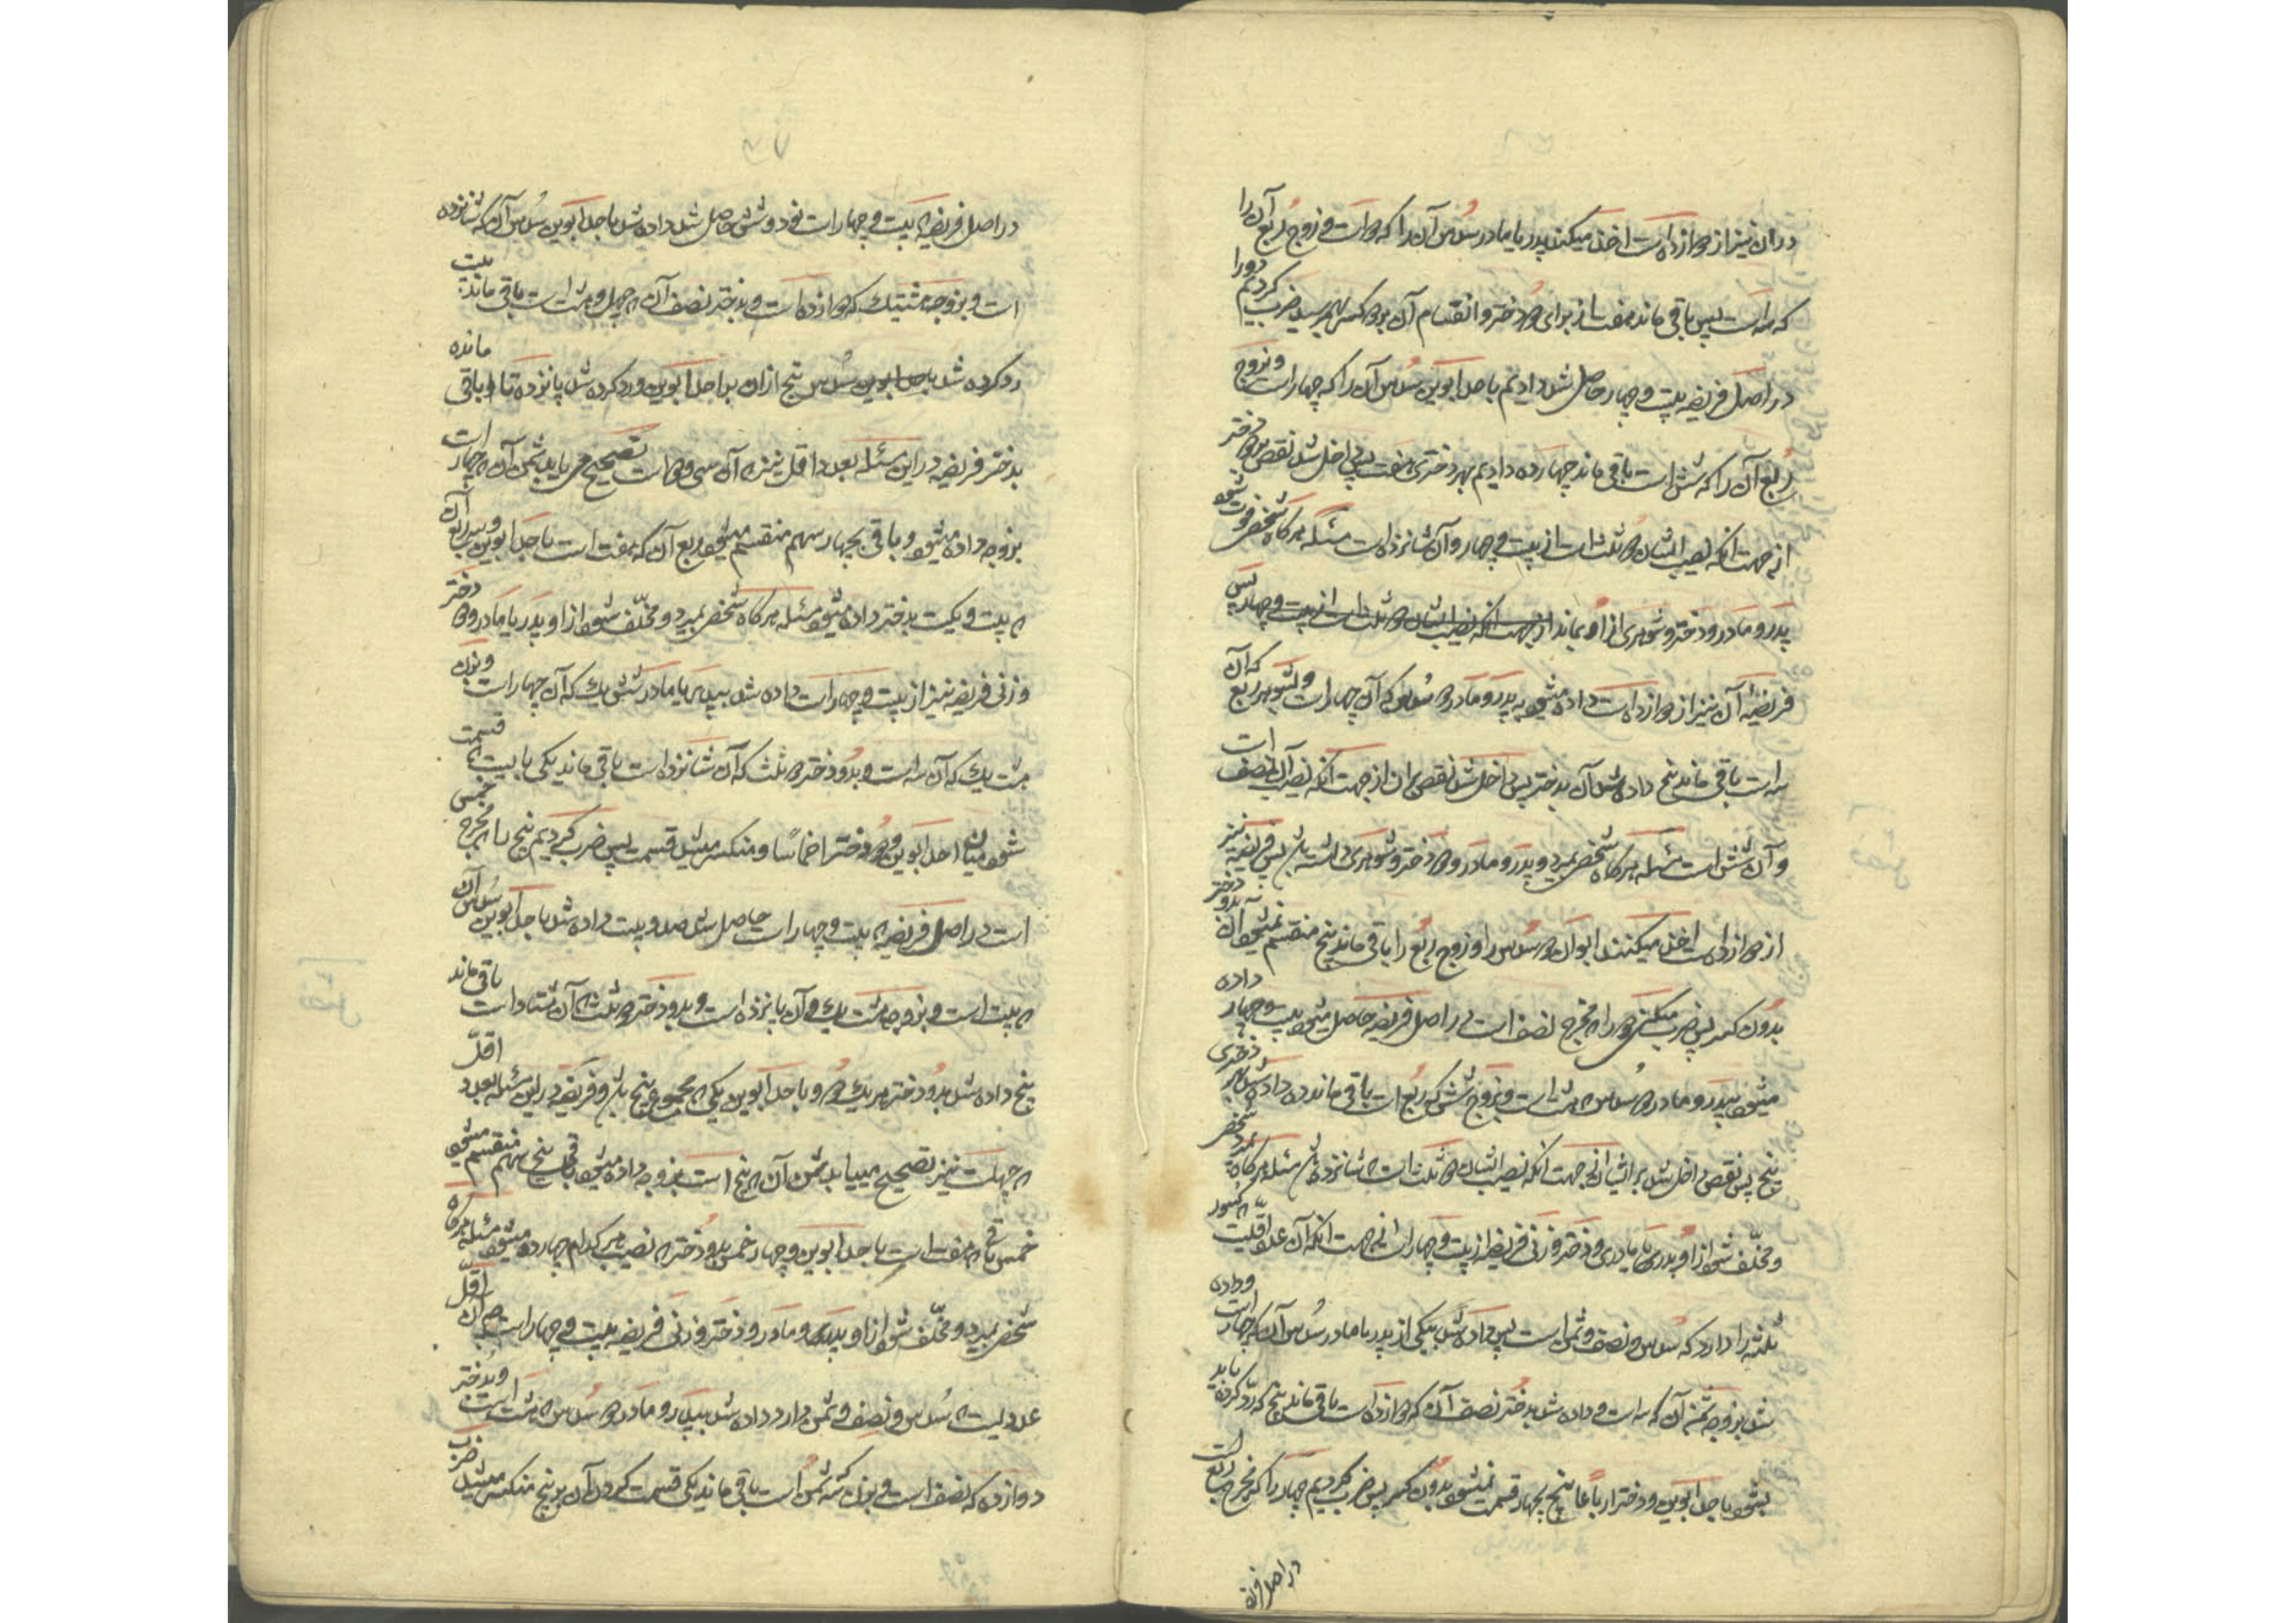 در آن نیز از دوازده است اخذ میکند پدر یا مادر سُدس آن را که دو است و زوج رُبع آن را
که سه است پس باقی ماند هفت از برای دو دختر و انقسام آن بر دو کسر بهم رسید ضرب کردیم دو را
در اصل فریضه بیست و چهار حاصل شد دادیم باحد ابوین سُدس آن را که چهار است و بزوج
رُبع آن را که شش است باقی ماند چهارده دادیم بهر دختری هفت پس داخل شد نقص بر دو دختر
از جهت آنکه نصیب ایشان دو ثلث است از بیست و چهار و آن شانزده است مسئله هر گاه شخصی فوت شود
پدر و مادر و دختر و شوهری از او بماند از جهت آنکه نصیب ایشان دو ثلث است از بیست و چهار پس
فریضهٔ آن نیز از دوازده است داده میشود به پدر و مادر دو سُدس که آن چهار است و بشوهر ربع که آن
سه است باقی ماند پنج داده شد آن بدختر پس داخل شد نقص بر آن از جهت آنکه نصیب آن نصف است
و آن شش است مسئله هر گاه شخص بمیرد و پدر و مادر و دو دختر و شوهری داشته باشد پس فریضه نیز
از دوازده است اخذ میکنند ابوان دو سُدس را و زوج رُبع را باقی ماند پنج منقسم نمیشود آن به دو دختر
بدون کسر پس ضرب میکنی دو را که مخرج نصف است در اصل فریضه حاصل میشود بیست و چهار داده
میشود بپدر و مادر دو سُدس که هشت است و بزوج شش که رُبع است باقی ماند ده داده شد بهر دختری
پنج پس نقص داخل شد بر ایشان از جهت آنکه نصیب ایشان دو ثلث است که شانزده باشد مسئله هر گاه بمیرد شخص
و مخلّف شود از او پدری یا مادری و دختر و زنی فریضه از بیست و چهار است از جهت آنکه آن اقلّ عددیست که کسور
ثلثه را دارد که سُدس و نصف و ثمن است پس داده شد بیکی از پدر یا مادر سُدس آن که چهار است و داده
شد بزوجه ثمن آن که سه است و داده شد بدختر نصف آن که دوازده است باقی ماند پنج که ردّ کرده باید
بشود باحد ابوین و دختر ارباعًا پنج بچهار قسمت نمیشود بدون کسر پس ضرب کردیم چهار را که مخرج ربع است
در اصل فریضه
در اصل فریضه که بیست و چهار است نود و شش حاصل شد داده شد باحد ابوین سُدس آن که شانزده
است و بزوجه هشتیک که دوازده است و بدختر نصف آن که چهل و هشت است باقی ماند بیست
رد کرده شد باحد ابوین سُدس پنج از آن بر احد ابوین و رد کرده شد پانزده تا را باقی مانده
بدختر فریضه در این مسئله بعدد اقل نیز که آن سی و دو است تصحیح می یابد ثمن آن که چهار است
بزوجه داده میشود و باقی بچهار سهم منقسم میشود ربع آن که هفت است باحد ابوین و سه ربع آن
که بیست و یک است بدختر داده میشود مسئله هر گاه شخص بمیرد و مخلّف شود از او پدر یا مادر و دو دختر
و زنی فریضه نیز از بیست و چهار است داده شد بپدر یا مادر شش یک که آن چهار است و بزن
هشت یک که آن سه است و بدو دختر دو ثلث که آن شانزده است باقی ماند یکی بایست که قسمت
شود میان احد ابوین و دو دختر اخماسًا و منکسر میشد قسمت پس ضرب کردیم پنج را که مخرج خمس
است در اصل فریضه که بیست و چهار است حاصل شد صد و بیست داده شد باحد ابوین سُدس آن
که بیست است و بزوجه هشت یک و آن پانزده است و بدو دختر دو ثلث که آن هشتاد است باقی ماند
پنج داده شد بدو دختر هر یک دو و باحد ابوین یکی که مجموع پنج باشد و فریضه در این مسئله بعدد اقلّ
که چهلست نیز تصحیح مییابد ثمن آن که پنج است بزوجه داده میشود باقی بپنج سهم منقسم میشود
خمس باقی که هفت است باحد ابوین و چهار خمس بدو دختر که نصیب هر کدام چهارده میشود مسئله هر گاه
شخص بمیرد و مخلّف شود از او پدر و مادر و دختر و زنی فریضه بیست و چهار است چه آن اقلّ
عددیست که سُدس و نصف و ثمن دارد داده شد بپدر و مادر دو سُدس که هشت است و بدختر
دوازده که نصف است و بزن سه که ثمن است باقی ماند یکی قسمت کردن آن بر پنج منکسر میشد ضرب